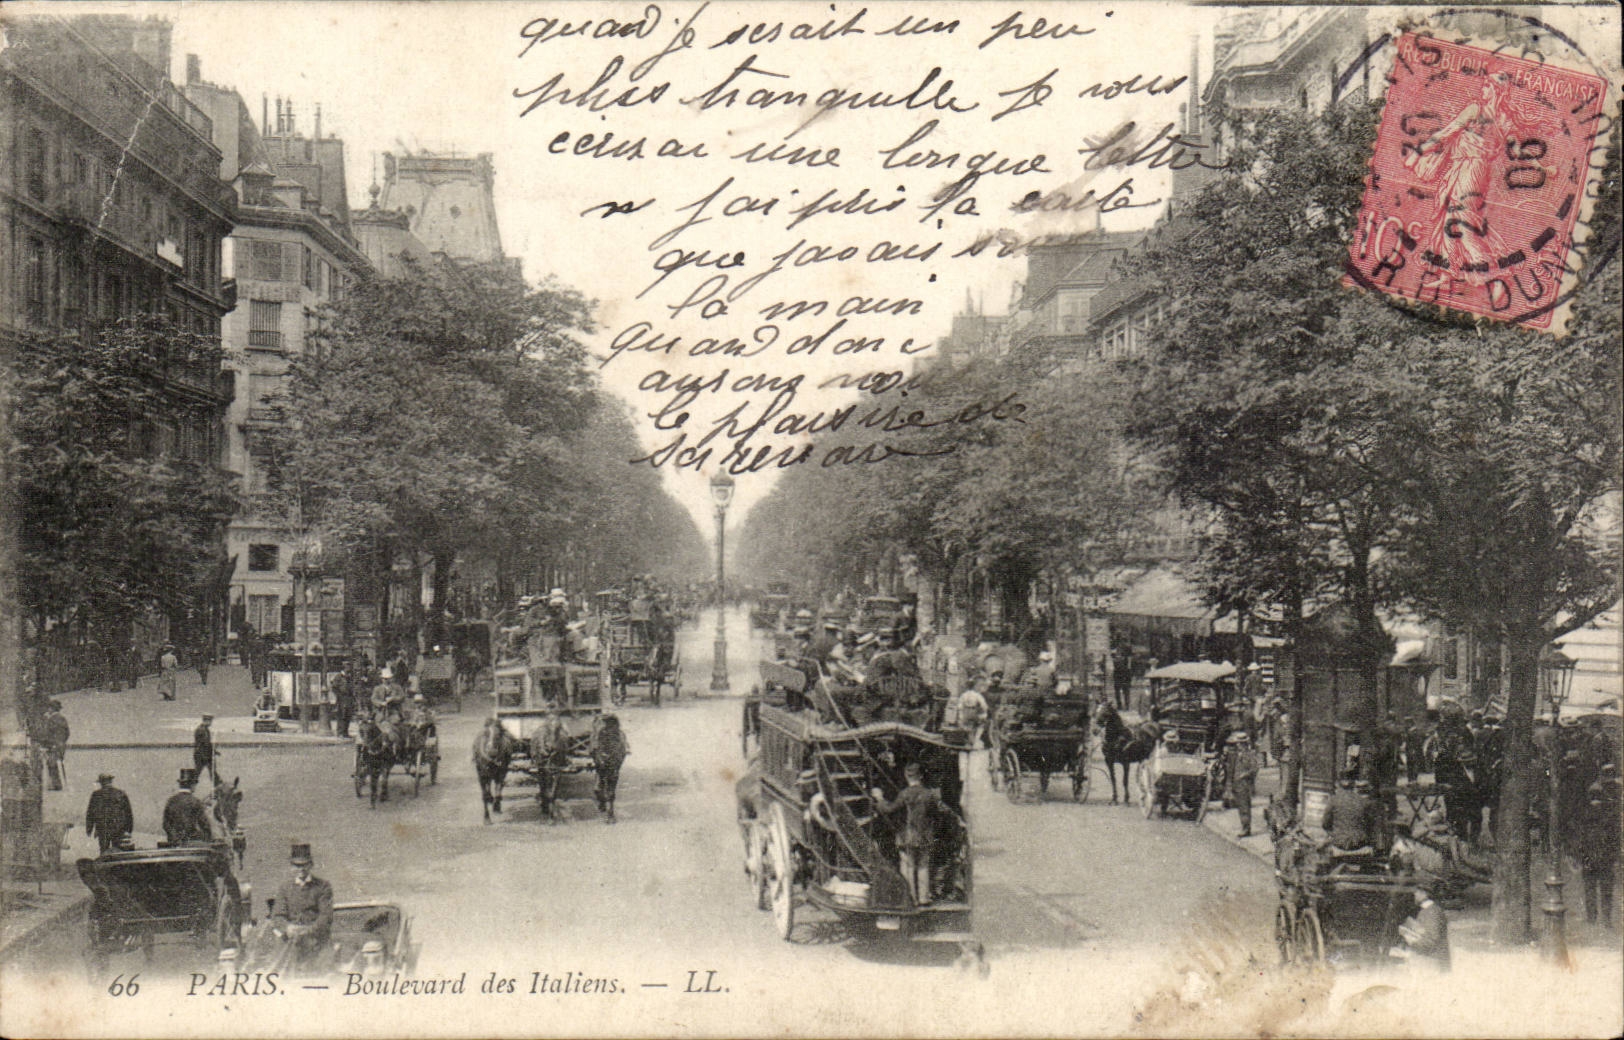 quand je serait un peu
plus tranquille je vous
ecirai une longue lettre
j ai pris la carte
que javais sous
la main
quand donc
aurons nous
le plaisire de
se revoir
REPUBLIQUE FRANÇAISE
10c
25
06
R. DE DUNKERQUE
66 PARIS. — Boulevard des Italiens. — LL.